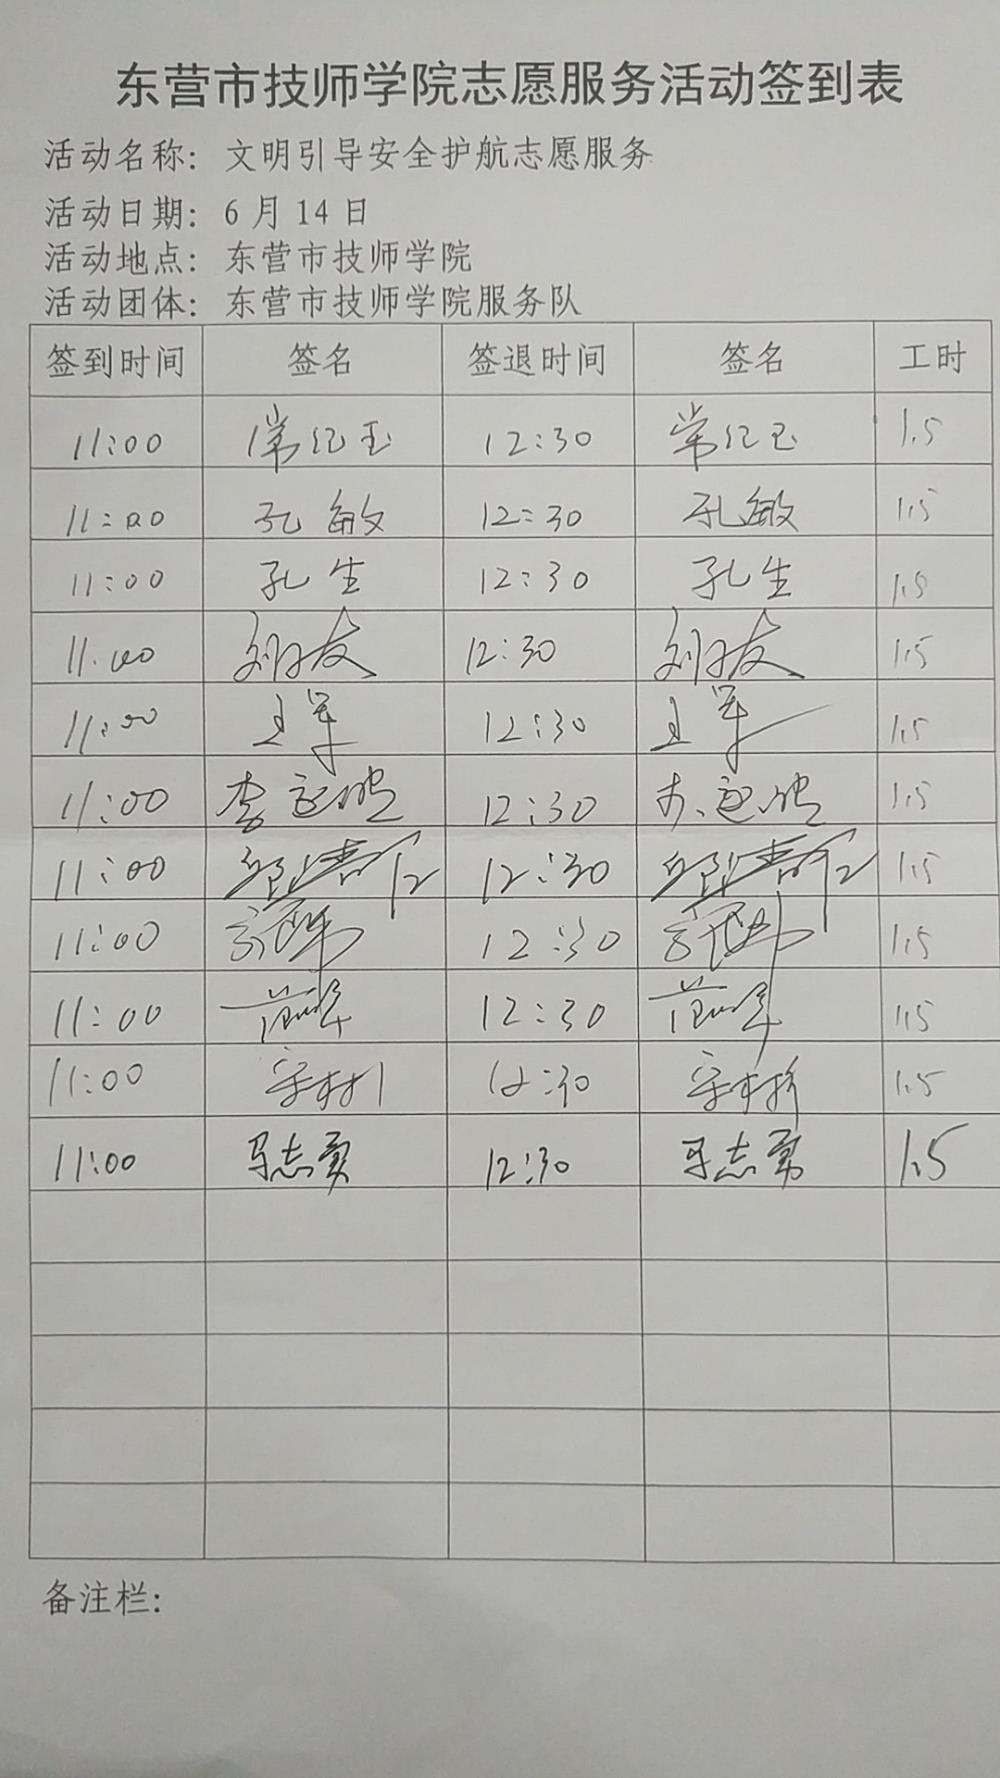 东营市技师学院志愿服务活动签到表
活动名称：文明引导安全护航志愿服务
活动日期：6月14日
活动地点：东营市技师学院
活动团体：东营市技师学院服务队
签到时间 签名 签退时间 签名 工时
11:00 常纪玉 12:30 常纪玉 1.5
11:00 孔敏 12:30 孔敏 1.5
11:00 孔生 12:30 孔生 1.5
11:00 12:30 1.5
11:00 王军 12:30 王军 1.5
11:00 12:30 1.5
11:00 12:30 1.5
11:00 12:30 1.5
11:00 12:30 1.5
11:00 12:30 1.5
11:00 马志勇 12:30 马志勇 1.5
备注栏：